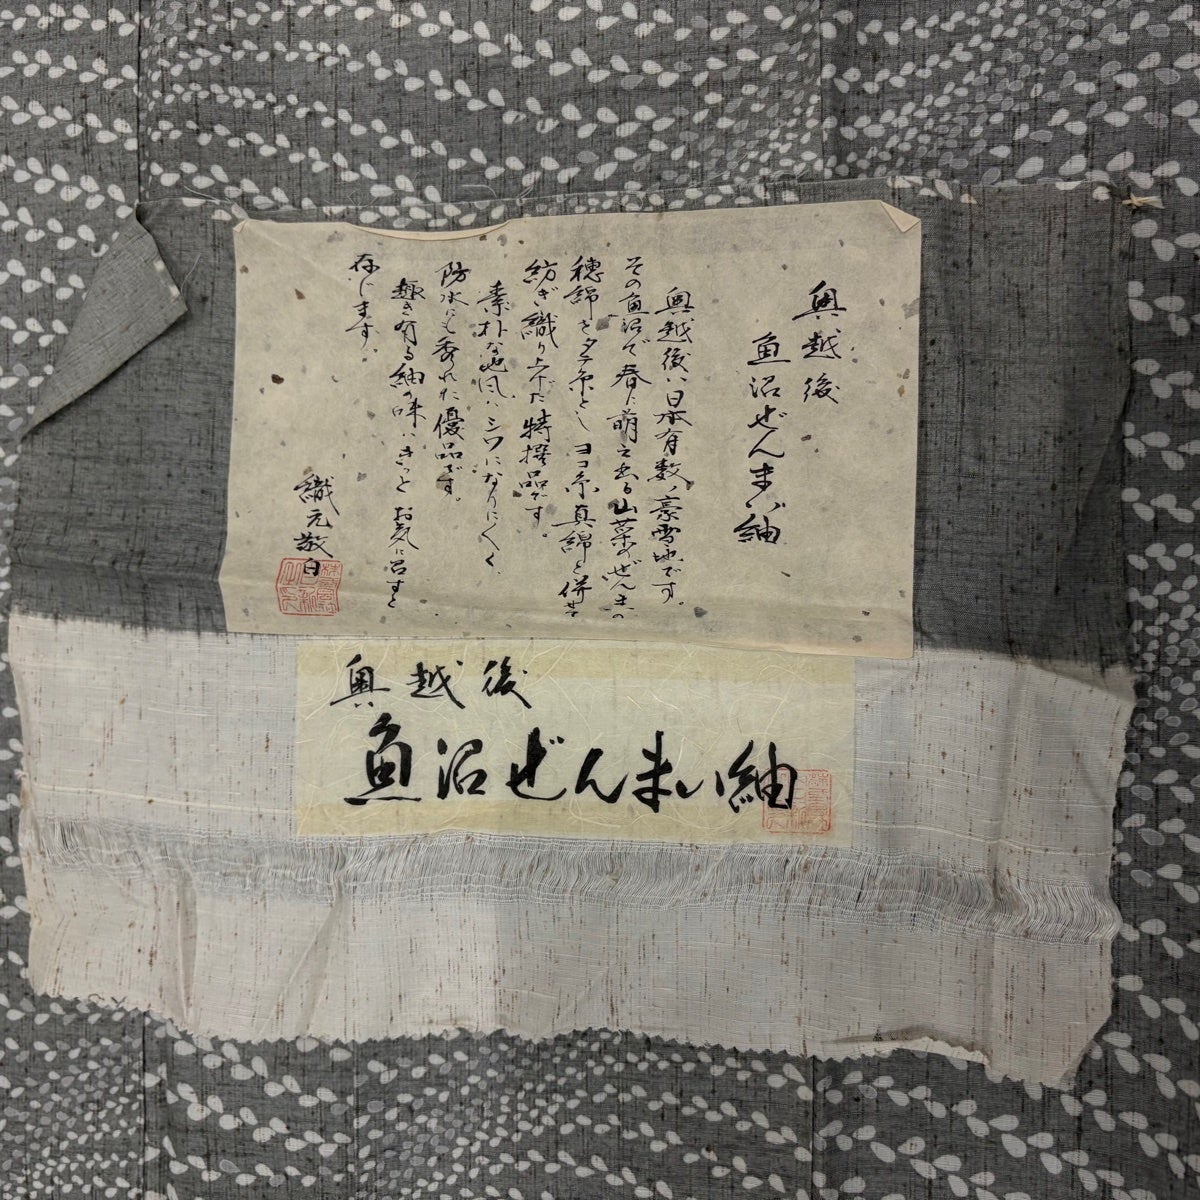 奥越後
魚沼ぜんまい紬
奥越後は日本有数の豪雪地です。
その魚沼で春に萌え出る山菜のぜんまいの
穂綿をタテ糸とし ヨコ糸真綿と併せ
紡ぎ織り上げた特撰品です。
素朴な地風、シワになりにくく、
防水にも秀れた優品です。
趣き有る紬の味はきっとお気に召すと
存じます。
織元敬白
奥越後
魚沼ぜんまい紬